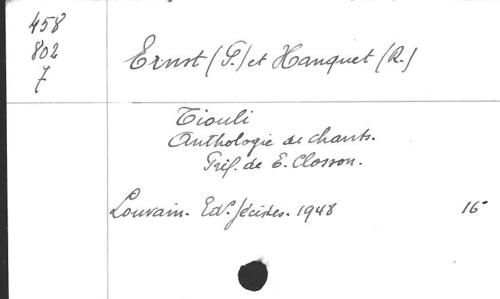 458
802
7
Ernst (P.) et Hanquet (R.)
Tiouli
Anthologie de chants.
Préf. de E. Closson.
Louvain. Ed. 1948 16°